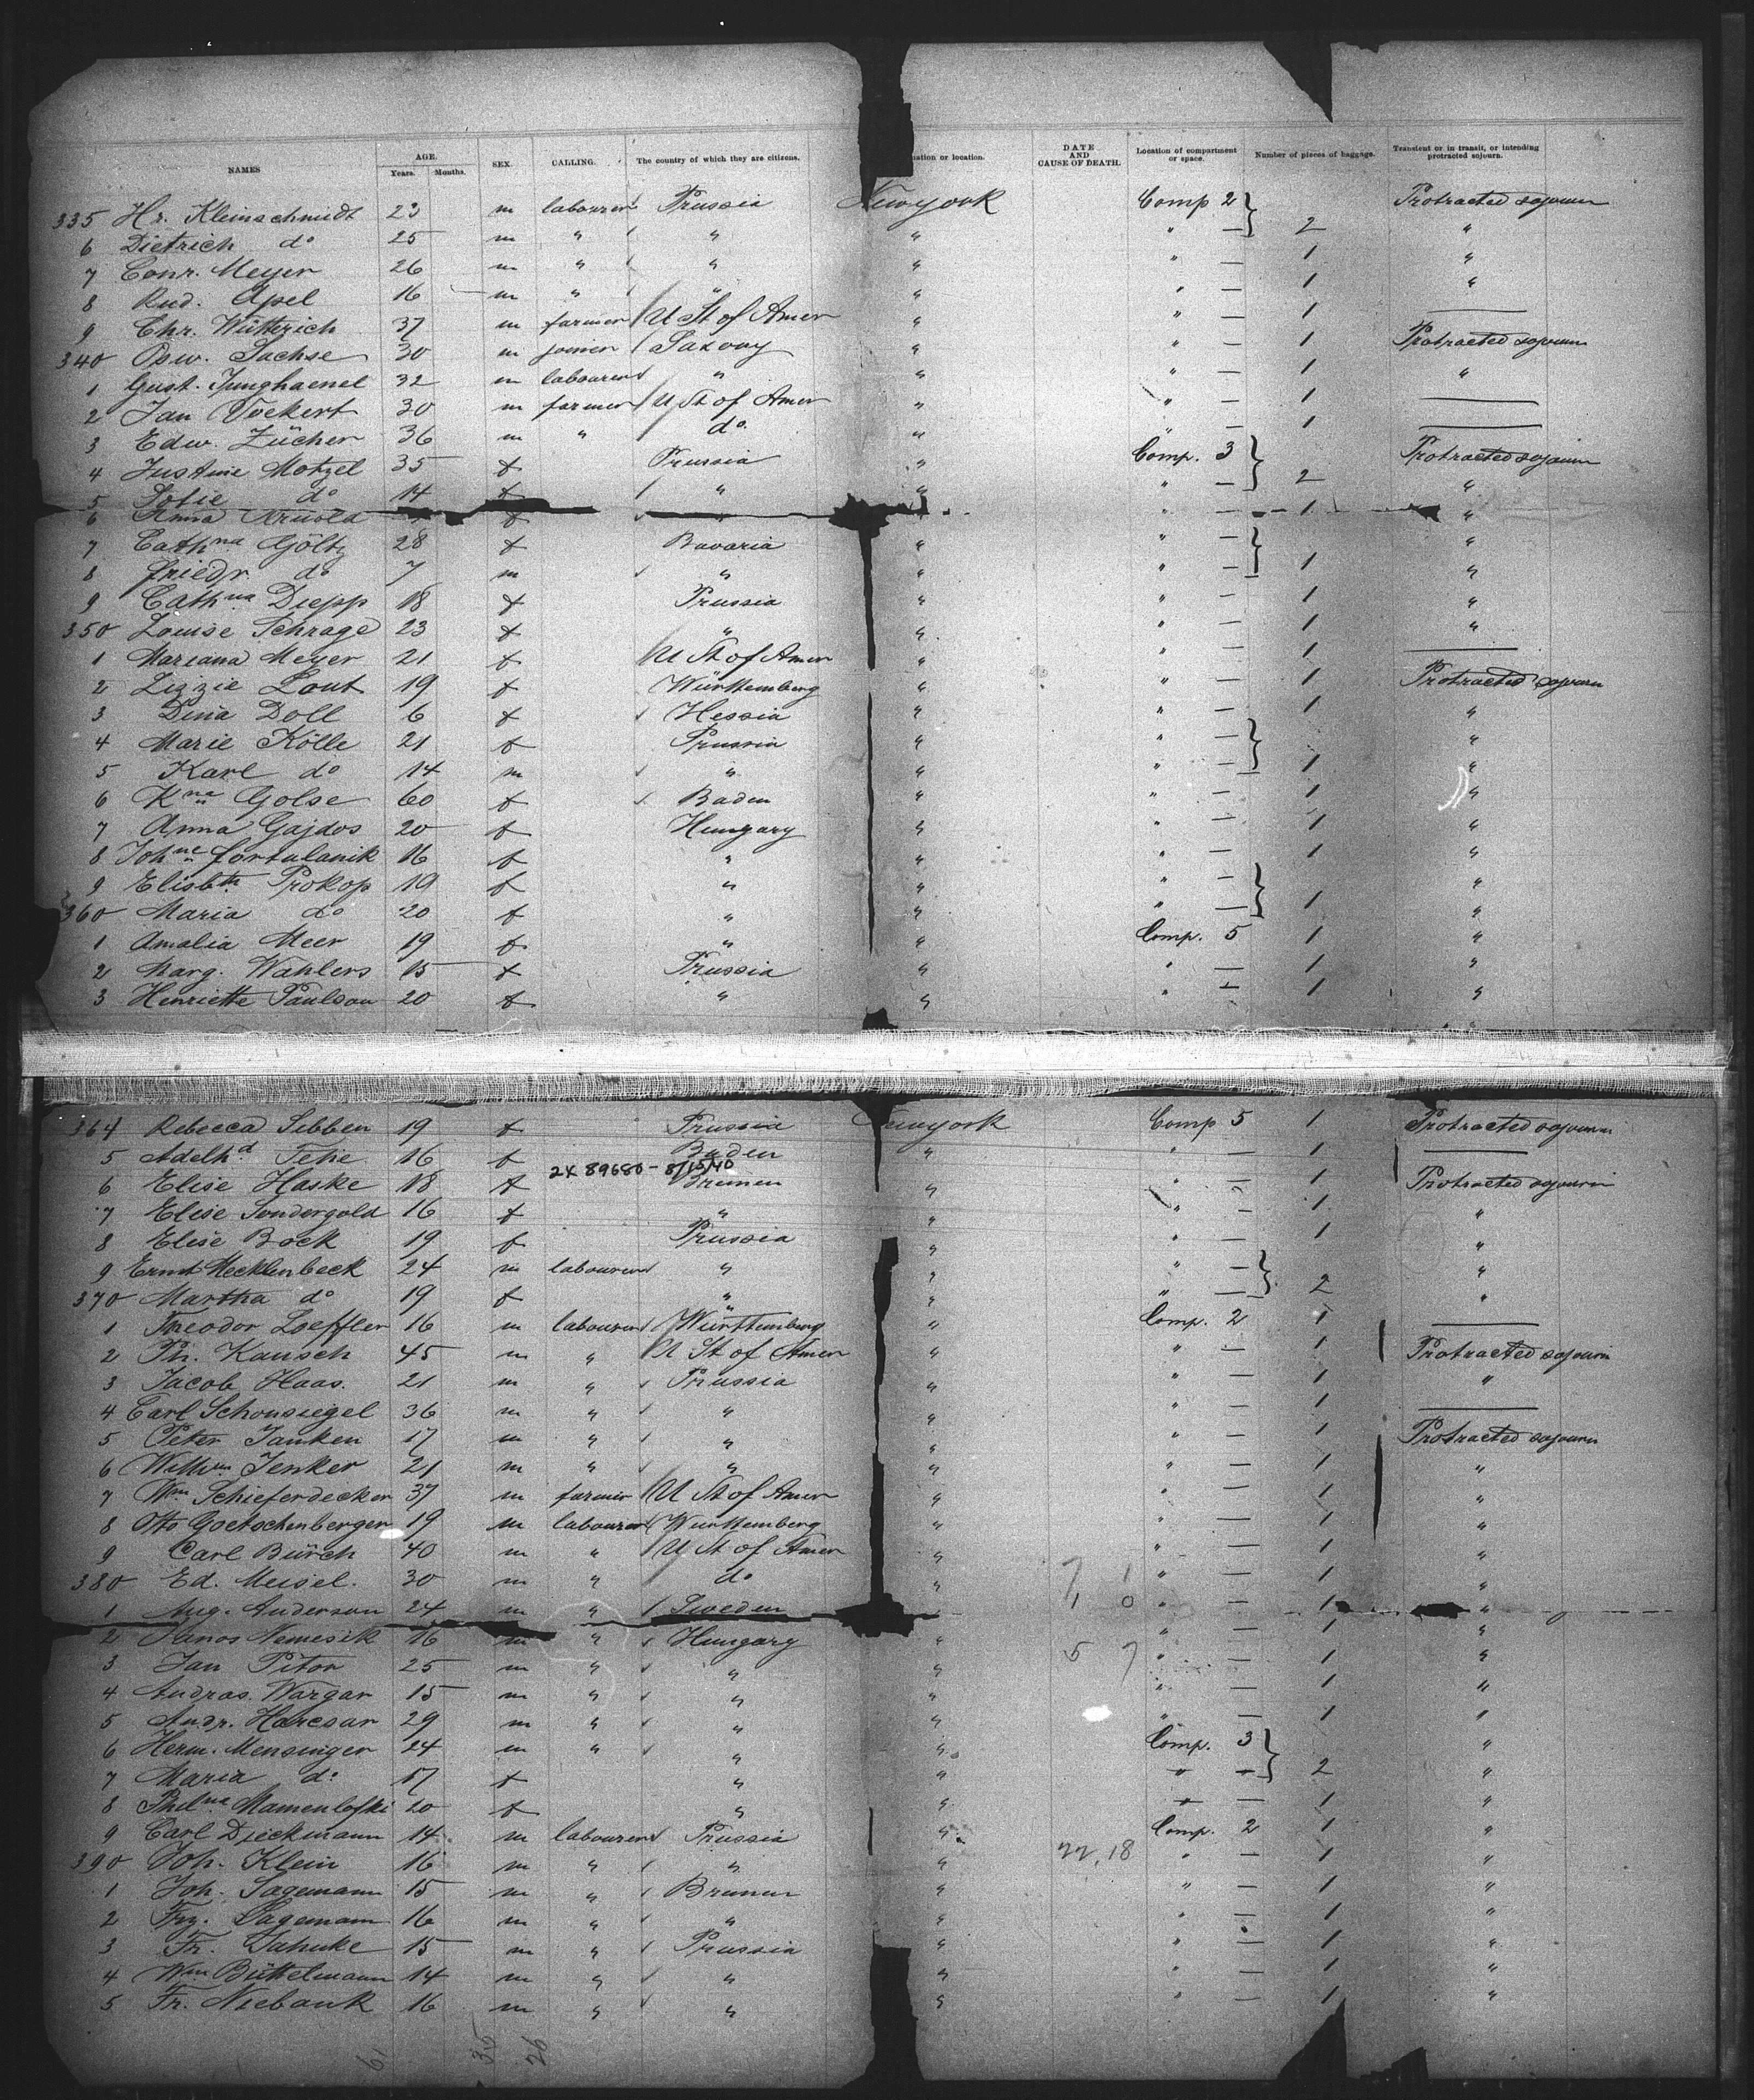 NAMES AGE. Years. Months. SEX. CALLING. The country of which they are citizens. nation or location. DATE AND CAUSE OF DEATH. Location of compartment or space. Number of pieces of baggage. Transient or in transit, or intending protracted sojourn.
335 Hr. Kleinschmidt 23 m labourer Prussia Newyork Comp 2 Protracted sojourn
6 Dietrich do 25 m " " " " — 2 "
7 Conr. Meyer 26 m " " " " — 1 "
8 Rud. Apel 16 m " " " " — 1 "
9 Chr. Wütterich 37 m farmer U St of Amer " " — 1 —
340 Osw. Sachse 30 m joiner Saxony " " — 1 Protracted sojourn
1 Gust. Junghaenel 32 m labourer " " " — 1 "
2 Jan Vockert 30 m farmer U St of Amer " " — 1 —
3 Edw. Zücher 36 m " do. " " — 1 —
4 Justine Motzel 35 f Prussia " Comp. 3 Protracted sojourn
5 Sofie do 14 f " " " — 2 "
6 Anna Arnold f " " — 1 "
7 Cathna Göltz 28 f Bavaria " " — "
8 Friedr. do 7 m " " " — 1 "
9 Cathna Diepp 18 f Prussia " " — 1 "
350 Louise Schrage 23 f " " " — 1 "
1 Mariana Meyer 21 f U St of Amer " " — 1 —
2 Lizzie Lout 19 f Württemberg " " — 1 Protracted sojourn
3 Dina Doll 6 f Hessia " " — 1 "
4 Marie Kölle 21 f Prussia " " — "
5 Karl do 14 m " " " — 1 "
6 Kna Golse 60 f Baden " " — 1 "
7 Anna Gajdos 20 f Hungary " " — 1 "
8 Johne Fortulanik 16 f " " " — 1 "
9 Elisbth Prokop 19 f " " " — "
360 Maria do 20 f " " " — 1 "
1 Amalia Meer 19 f " " Comp. 5 1 "
2 Marg. Wahlers 15 f Prussia " " — 1 "
3 Henriette Paulson 20 f " " " — 1 "
364 Rebecca Sibben 19 f Prussia Newyork Comp 5 1 Protracted sojourn
5 Adelhd Tehe 16 f Baden " " — 1 —
2X 89680 - 8/15/40
6 Elise Haske 18 f Bremen " " — 1 Protracted sojourn
7 Elise Sundergold 16 f " " " — 1 "
8 Elise Bock 19 f Prussia " " — 1 "
9 Ernst Hecklenbeck 24 m labourer " " " — "
370 Martha do 19 f " " " — 2 "
1 Theodor Loeffler 16 m labourer Württemberg " Comp. 2 1 —
2 Ph. Kausch 45 m " U St of Amer " " — 1 Protracted sojourn
3 Jacob Haas. 21 m " Prussia " " — 1 "
4 Carl Schonsiegel 36 m " " " " — 1 —
5 Peter Janken 17 m " " " " — 1 Protracted sojourn
6 Willm Jenker 21 m " " " " — 1 "
7 Wm Schieferdecker 37 m farmer U St of Amer " " — 1 "
8 Otto Goetschenberger 19 m labourer Wurttemberg " " — 1 "
9 Carl Bürch 40 m " U St of Amer " " — 1 "
380 Ed. Meisel. 30 m " do " 7 1 " — 1 "
1 Aug. Anderson 24 m " Sweden 1 0 " — 1 "
2 Janos Nemesik 16 m " Hungary " " — 1 "
3 Jan Pitor 25 m " " " 5 7 " — 1 "
4 Andras. Wargar 15 m " " " " — 1 "
5 Andr. Harcsar 29 m " " " " — 1 "
6 Herm. Mensinger 24 m " " " Comp. 3 "
7 Maria do 17 f " " " — 2 "
8 Phelna Mamenlofski 20 f " " " — 1 "
9 Carl Dieckmann 14 m labourer Prussia " Comp. 2 1 "
390 Joh. Klein 16 m " " " 22,18 " — 1 "
1 Joh. Sagemann 15 m " Bremen " " — 1 "
2 Frz. Sagemann 16 m " " " " — 1 "
3 Fr. Dahnke 15 m " Prussia " " — 1 "
4 Wm Büttelmann 14 m " " " " — 1 "
5 Fr. Niebank 16 m " " " " — 1 "
61 35 26